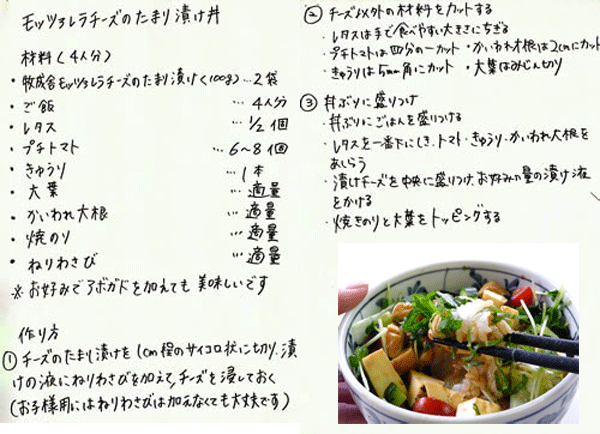 モッツァレラチーズのたまり漬け丼
材料(4人分)
・牧成舎モッツァレラチーズのたまり漬け(100g)…2袋
・ご飯 …4人分
・レタス …1/2個
・プチトマト …6～8個
・きゅうり …1本
・大葉 …適量
・かいわれ大根 …適量
・焼のり …適量
・ねりわさび …適量
※お好みでアボガドを加えても美味しいです
作り方
①チーズのたまり漬けを1cm程のサイコロ状に切り、漬
けの液にねりわさびを加えて、チーズを浸しておく
(お子様用にはねりわさびは加えなくても大丈夫です)
②チーズ以外の材料をカットする
・レタスは手で食べやすい大きさにちぎる
・プチトマトは四分の一カット・かいわれ大根は2cmにカット
・きゅうりは5mm角にカット ・大葉はみじん切り
③丼ぶりに盛りつけ
・丼ぶりにごはんを盛りつける
・レタスを一番下にしき、トマト・きゅうり・かいわれ大根を
あしらう
・漬けチーズを中央に盛りつけ、お好みの量の漬け液
をかける
・焼きのりと大葉をトッピングする